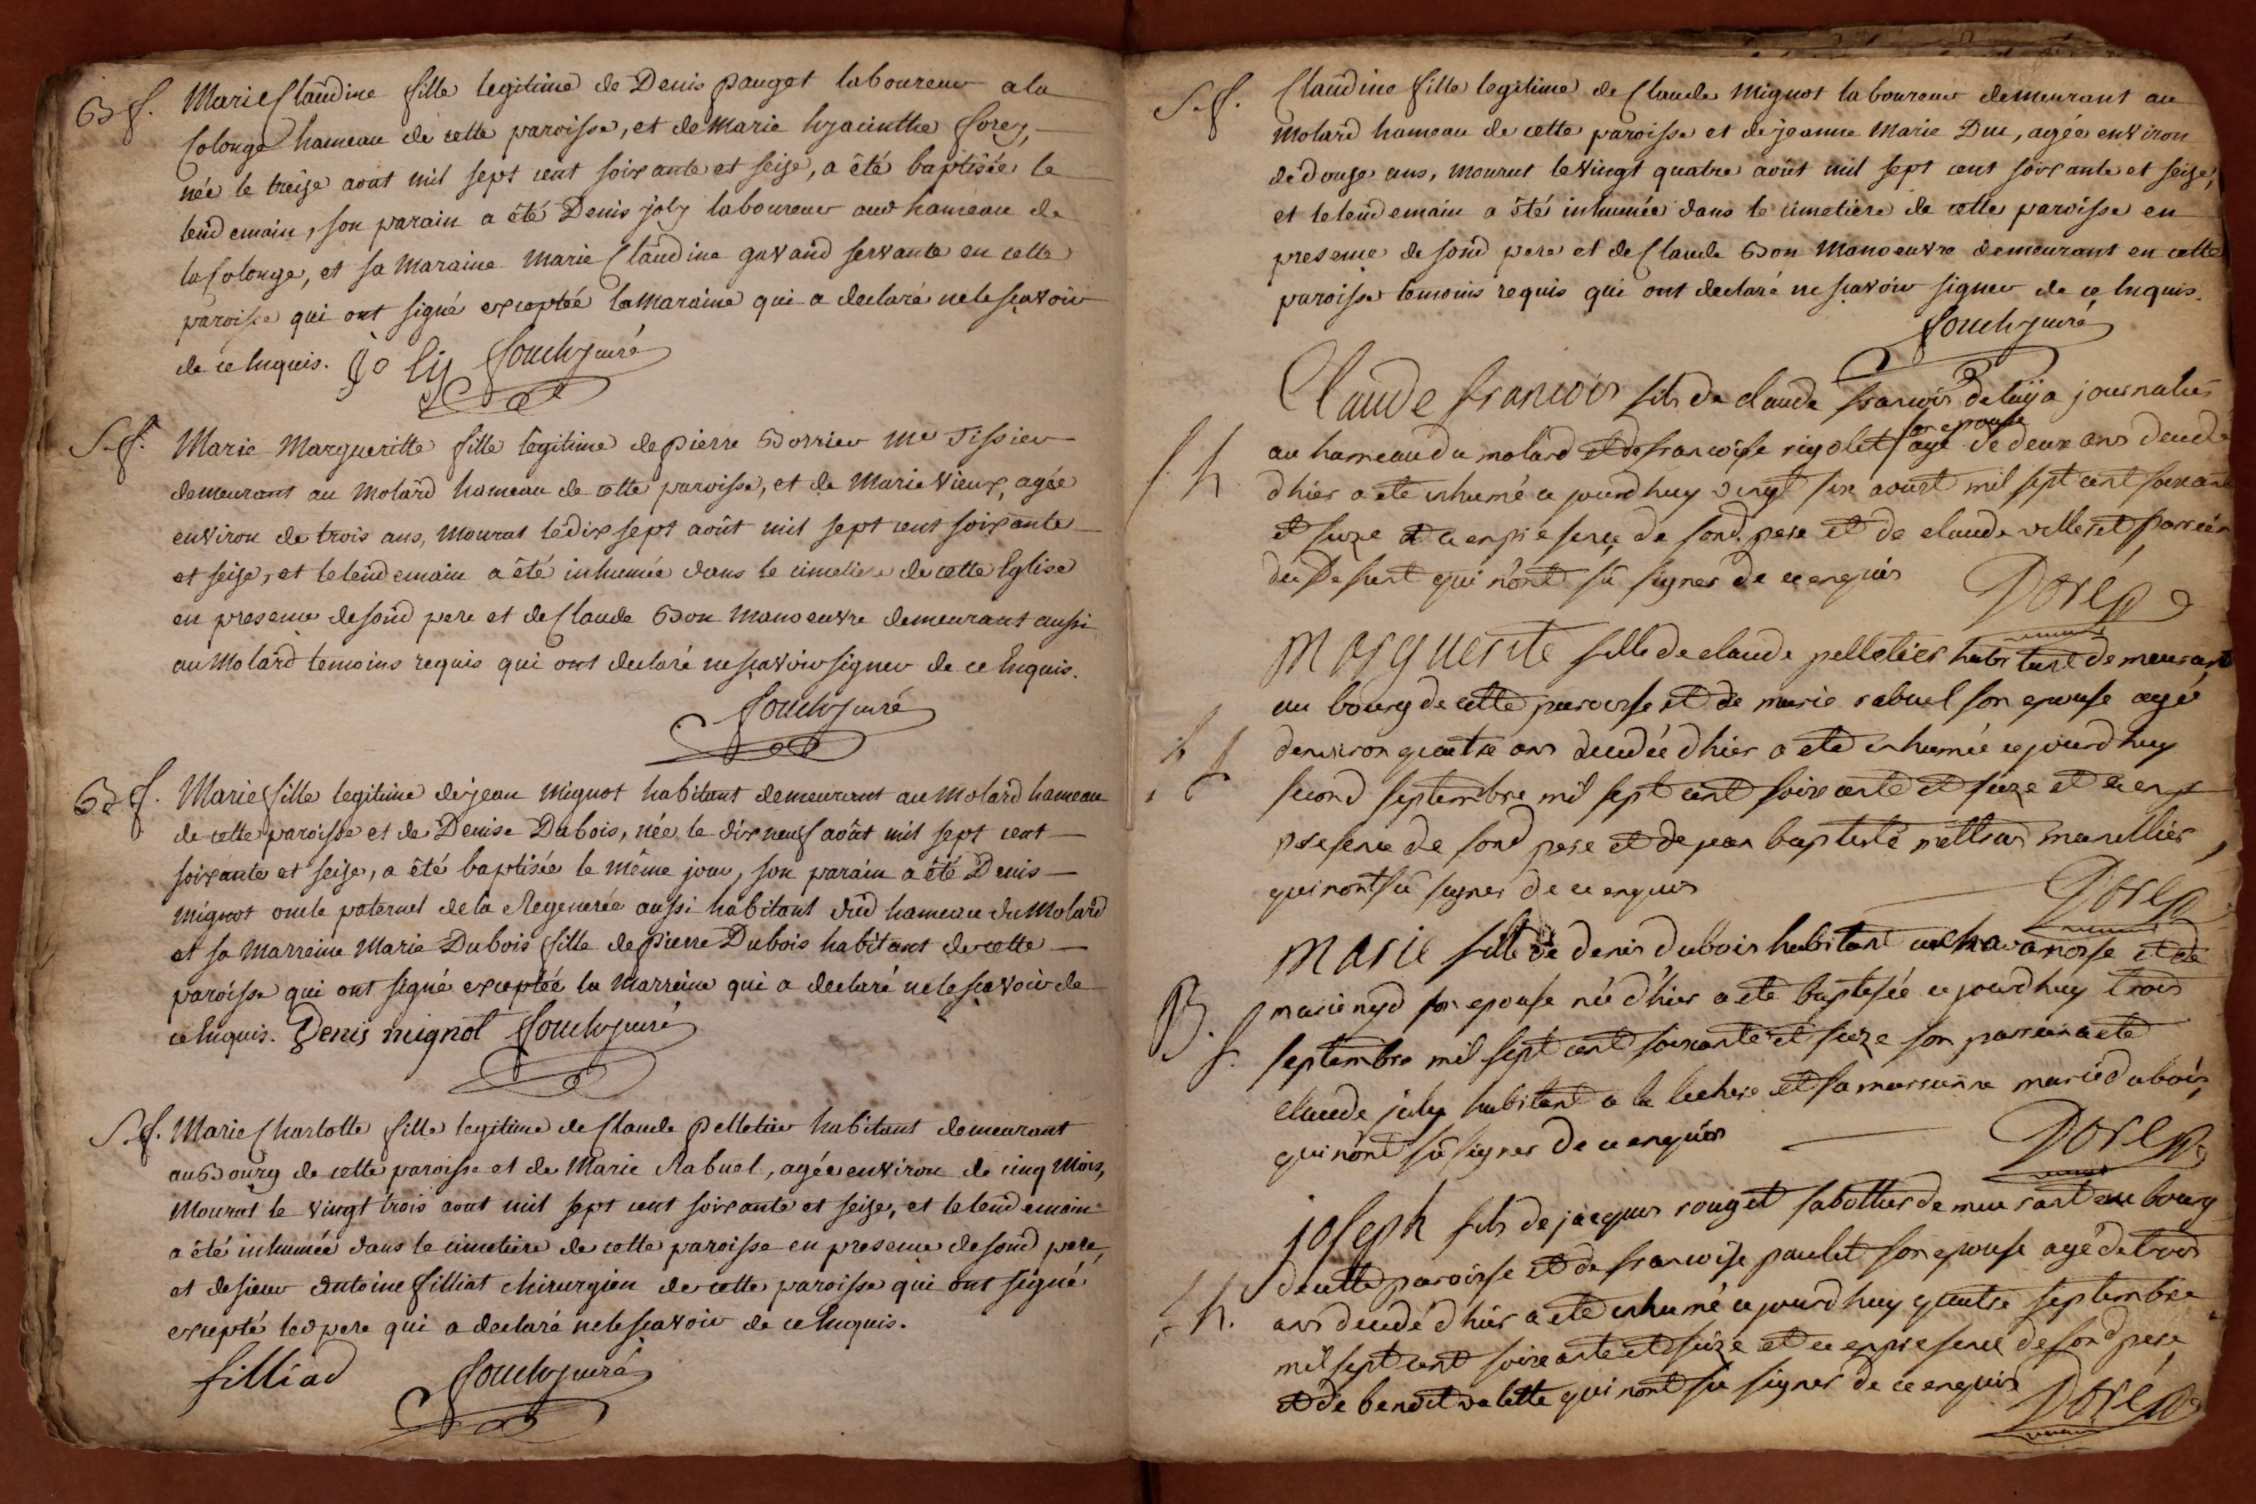 B f. Marie Claudine fille legitime de Denis pauget laboureur a la
Colonge hameau de cette paroisse, et de Marie hyacinthe forey,
née le treize aout mil sept cent soixante et seize, a été baptisée le
lendemain, son parain a été Denis joly laboureur aud hameau de
la Colonge, et sa maraine Marie Claudine gavand servante en cette
paroisse qui ont signé exceptéé la maraine qui a declaré ne le sçavoir
de ce Enquis. joly Souchy curé
S. f. Marie Margueritte fille legitime de pierre Borrier me Tissier
demeurant au Molard hameau de cette paroisse, et de Marie Vieux, agée
environ de trois ans, mourut le dix sept août mil sept cent soixante
et seize, et le lendemain a été inhumée dans le cimetiere de cette Eglise
en presence de sond pere et de Claude Bon Manoeuvre demeurant aussi
au Molard temoins requis qui ont declaré ne sçavoir signer de ce Enquis.
Souchy curé
B f. Marie fille legitime de jean Mignot habitant demeurant au Molard hameau
de cette paroisse et de Denise Dubois, née le dix neuf août mil sept cent
soixante et seize, a été baptisée le même jour, son parain a été Denis
Mignot oncle paternel de la Regenerée aussi habitant dud hameau du Molard
et sa Marreine Marie Dubois fille de Pierre Dubois habitant de cette
paroisse qui ont signé exceptéé la Marreine qui a declaré ne le sçavoir de
ce Enquis. Denis mignot Souchy curé
S. f. Marie Charlotte fille legitime de Claude Pelletier habitant demeurant
au Bourg de cette paroisse et de Marie Rabuel, agée environ de cinq Mois,
Mourut le vingt trois aout mil sept cent soixante et seize, et le lendemain
a été inhumée dans le cimetiere de cette paroisse en presence de sond pere,
et de sieur Antoine filliat chirurgien de cette paroisse qui ont signé
excepté led pere qui a declaré ne le sçavoir de ce Enquis.
filliad Souchy curé
S. f. Claudine fille legitime de Claude Mignot laboureur demeurant au
Molard hameau de cette paroisse et de jeanne Marie Duc, agée environ
de douze ans, mourut le vingt quatre août mil sept cent soixante et seize,
et le lendemain a été inhumée dans le cimetiere de cette paroisse en
presence de sond pere et de Claude Bon Manoeuvre demeurant en cette
paroisse temoins requis qui ont declaré ne sçavoir signer de ce Enquis.
Souchy curé
Claude francois fils de claude francois journalier
son epouse
au hameau du molard et de francoise rigolet agé de deux ans decedé
S h d'hier a ete inhumé ce jourd'huy vingt six aoust mil sept cent soixante
et seize et ce en presence de sond pere et de claude villeret parrein
du defunt qui n'ont sû signer de ce enquis
Dorel
Marguerite fille de claude pelletier habitant demeurant
au bourg de cette paroisse et de marie rabuel son epouse agé
S f d'environ quatre ans decedée d'hier a ete inhumée ce jourd'huy
second septembre mil sept cent soixante et seize et ce en
presence de sond pere et de jean baptiste marillier
qui n'ont sû signer de ce enquis
Dorel
Marie fille de denis dubois habitant a chavanosse et de
B. f. marie nyd son epouse née d'hier a ete baptisée ce jourd'huy trois
septembre mil sept cent soixante et seize son parrein a ete
claude joly habitant a la lechere et sa marraine marie dubois,
qui n'ont sû signer de ce enquis
Dorel
joseph fils de jacques rouget sabottier demeurant au bourg
de cette paroisse et de francoise paulet son epouse agé de trois
S. h. ans decedé d'hier a ete inhumé ce jourd'huy quatre septembre
mil sept cent soixante et seize et ce en presence de sond pere
et de benoit valette qui n'ont sû signer de ce enquis
Dorel